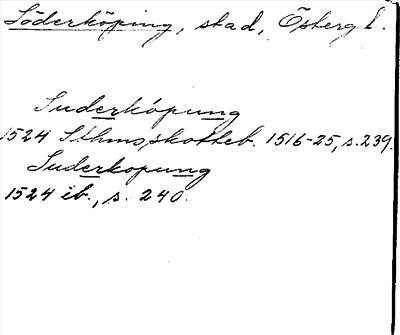 Söderköping, stad, Österg. l.
Suderkopung
1524 Sthms skotteb. 1516-25, s. 239.
Suderkopung
1524 ib., s. 240.